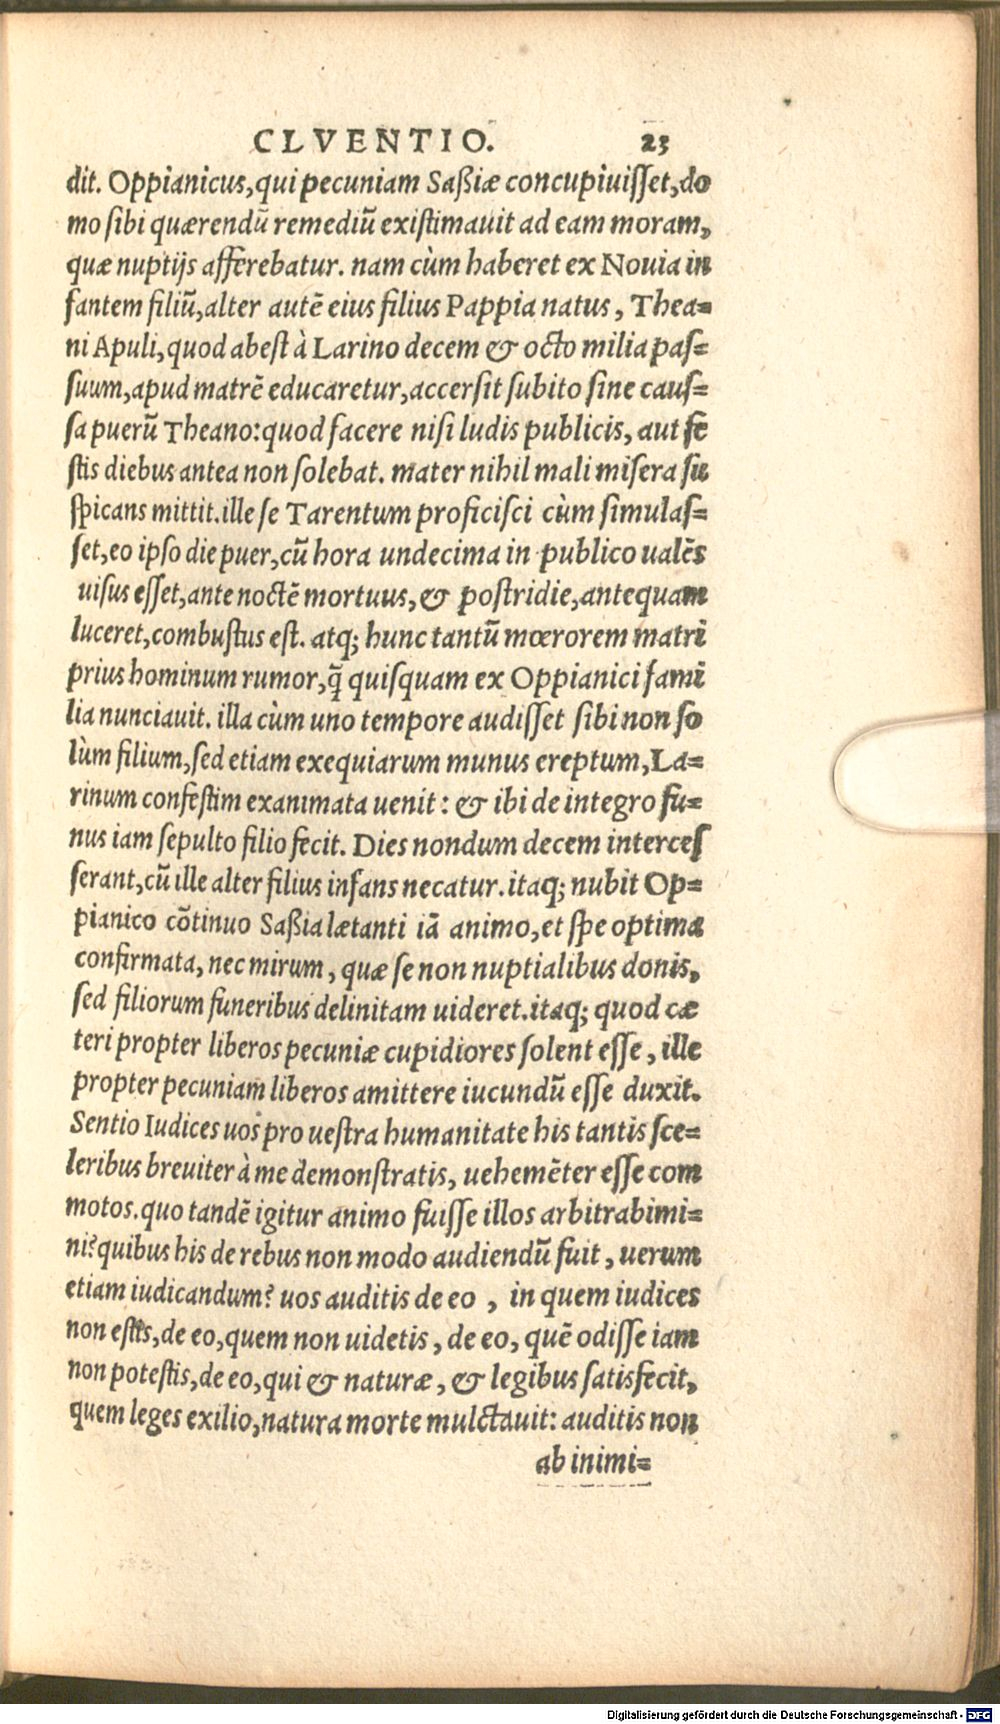 CLVENTIO. 23
dit. Oppianicus, qui pecuniam Saßiæ concupiuisset, do
mo sibi quærendũ remediũ existimauit ad eam moram,
quæ nuptijs afferebatur. nam cùm haberet ex Nouia in
fantem filiũ, alter autẽ eius filius Pappia natus, Thea=
ni Apuli, quod abest à Larino decem & octo milia pas=
suum, apud matrẽ educaretur, accersit subito sine caus=
sa puerũ Theano: quod facere nisi ludis publicis, aut fe
stis diebus antea non solebat. mater nihil mali misera su
spicans mittit. ille se Tarentum proficisci cùm simulas=
set, eo ipso die puer, cũ hora undecima in publico ualẽs
uisus esset, ante noctẽ mortuus, & postridie, antequam
luceret, combustus est. atq; hunc tantũ mœrorem matri
prius hominum rumor, q̃ quisquam ex Oppianici fami
lia nunciauit. illa cùm uno tempore audisset sibi non so
lùm filium, sed etiam exequiarum munus ereptum, La=
rinum confestim exanimata uenit: & ibi de integro fu=
nus iam sepulto filio fecit. Dies nondum decem interces
serant, cũ ille alter filius infans necatur. itaq; nubit Op=
pianico cõtinuo Saßia lætanti iã animo, et spe optima
confirmata, nec mirum, quæ se non nuptialibus donis,
sed filiorum funeribus delinitam uideret. itaq; quod cæ
teri propter liberos pecuniæ cupidiores solent esse, ille
propter pecuniam liberos amittere iucundũ esse duxit.
Sentio Iudices uos pro uestra humanitate his tantis sce=
leribus breuiter à me demonstratis, uehemẽter esse com
motos. quo tandẽ igitur animo fuisse illos arbitrabimi=
ni? quibus his de rebus non modo audiendũ fuit, uerum
etiam iudicandum? uos auditis de eo, in quem iudices
non estis, de eo, quem non uidetis, de eo, quẽ odisse iam
non potestis, de eo, qui & naturæ, & legibus satisfecit,
quem leges exilio, natura morte mulctauit: auditis non
ab inimi=
Digitalisierung gefördert durch die Deutsche Forschungsgemeinschaft - DFG